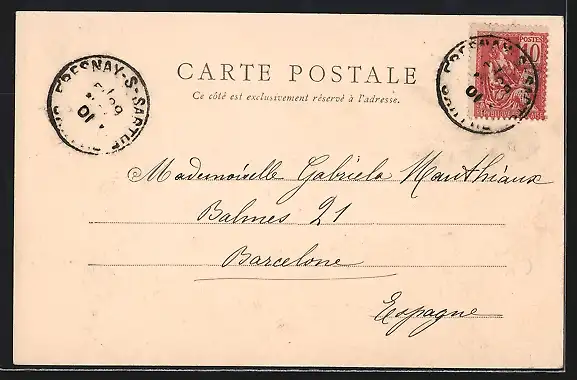 CARTE POSTALE
Ce côté est exclusivement réservé à l'adresse.
FRESNAY-S-SARTHE
POSTES
10
Mademoiselle Gabriela Manthiaux
Balmes 21
Barcelone
Espagne